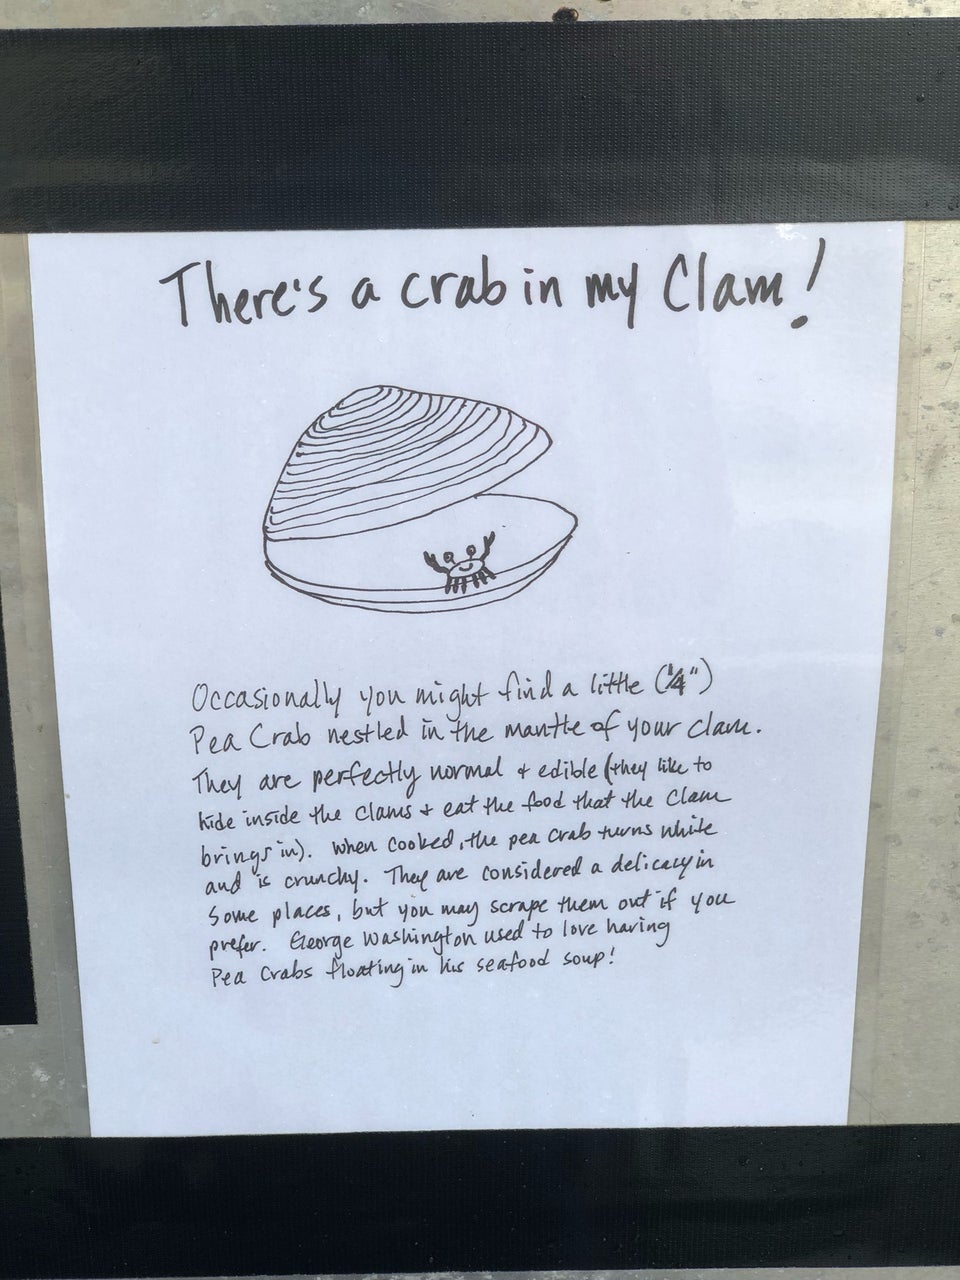 There's a crab in my Clam!
Occasionally you might find a little (¼")
Pea Crab nestled in the mantle of your clam.
They are perfectly normal + edible (they like to
hide inside the clams + eat the food that the clam
brings in). When cooked, the pea crab turns white
and is crunchy. They are considered a delicacy in
some places, but you may scrape them out if you
prefer. George Washington used to love having
Pea Crabs floating in his seafood soup!